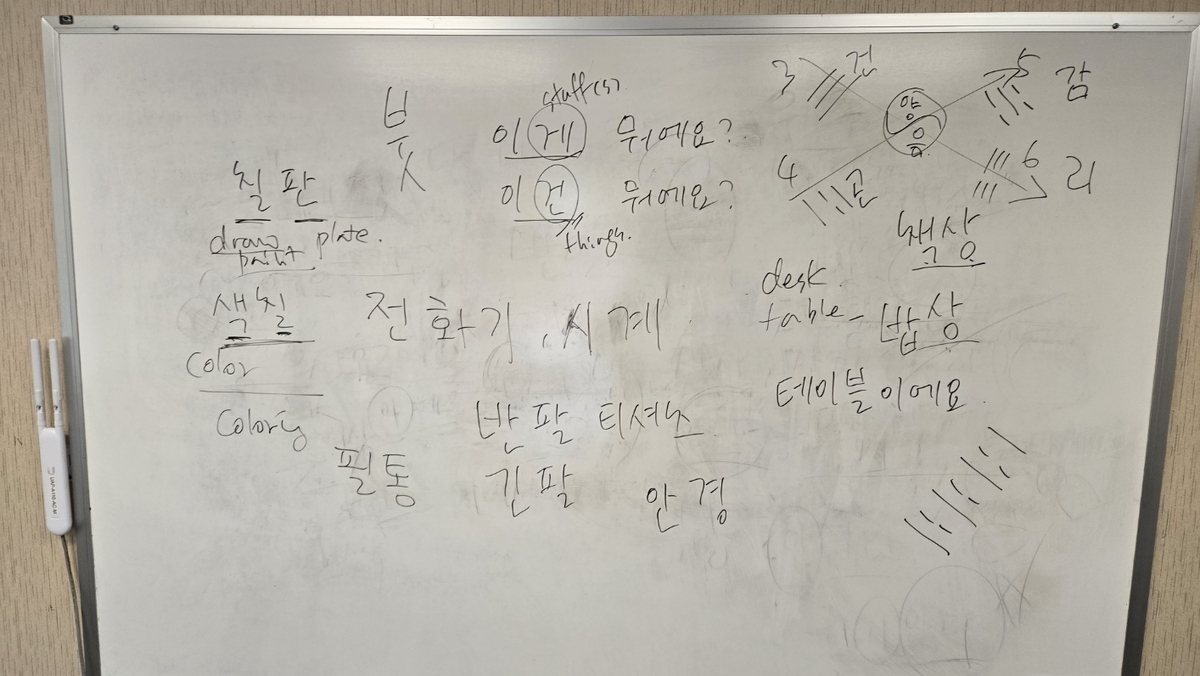 붓
stuff(s)
이게 뭐에요?
이건 뭐에요?
things.
칠판
draw plate.
paint
색칠
color
coloring
전화기, 시계
필통
반팔 티셔츠
긴팔
안경
3 건
5 감
양
음
4 곤
6 리
책상
desk
table - 밥상
테이블이에요